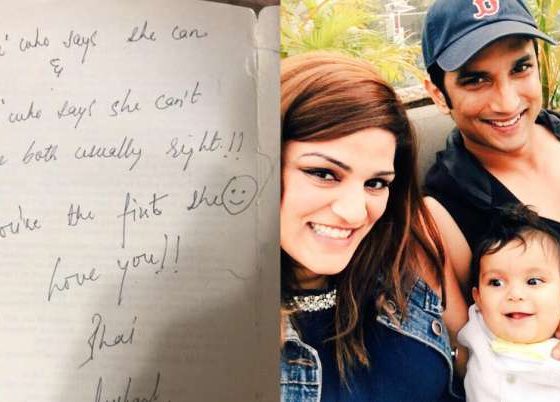 who says she can
&
who says she can't
both usually right!!
the firts she
Love you!!
Bhai
B